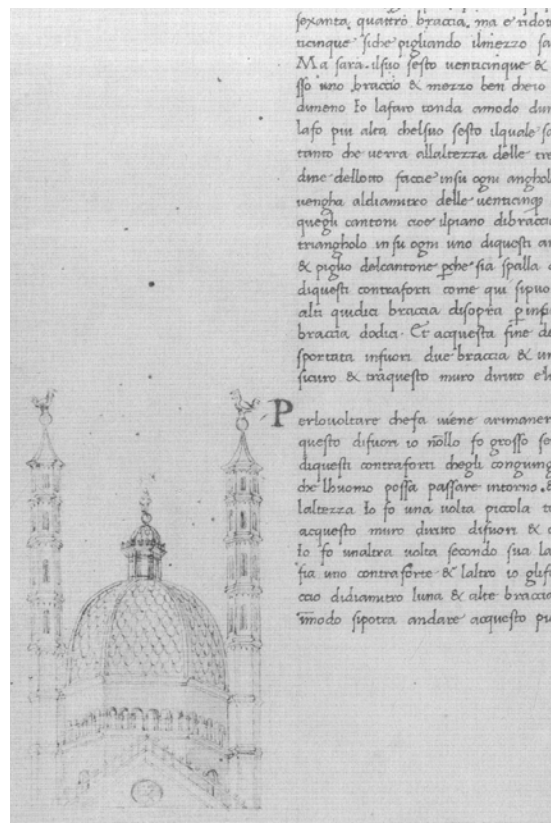 sexanta quattro braccia. ma e ridot
ticinque siche pigliando ilmezzo sa
Ma sara ilsuo sesto uenticinque &
sso uno braccio & mezzo ben chio
dimeno Io lafaro tonda amodo dun
lafo piu alta chelsuo sesto ilquale
tanto che uerra allaltezza delle tre
dine dellotto faccie insu ogni anghol
uengha aldiamitro delle uenticinq
quegli cantoni cioe ilpiano dibraccia
triangholo insu ogni uno diquesti an
& piglio delcantone pche sia spalla
diquesti contraforti come qui sipuo
alti quidici braccia disopra
braccia dodici. Et acquesta fine
sportata infuori due braccia & un
sicuro & traquesto muro diritto
Perlouoltare chefa uiene arimaner
questo difuori io nollo fo grosso
diquesti contraforti chegli congiung
che lhuomo possa passare intorno.
laltezza Io fo una uolta piccola
acquesto muro diritto difuori &
Io fo unaltra uolta secondo sua la
fia uno contraforte & laltro io
ccio didiamitro luna & alte braccia
modo sipotra andare acquesto